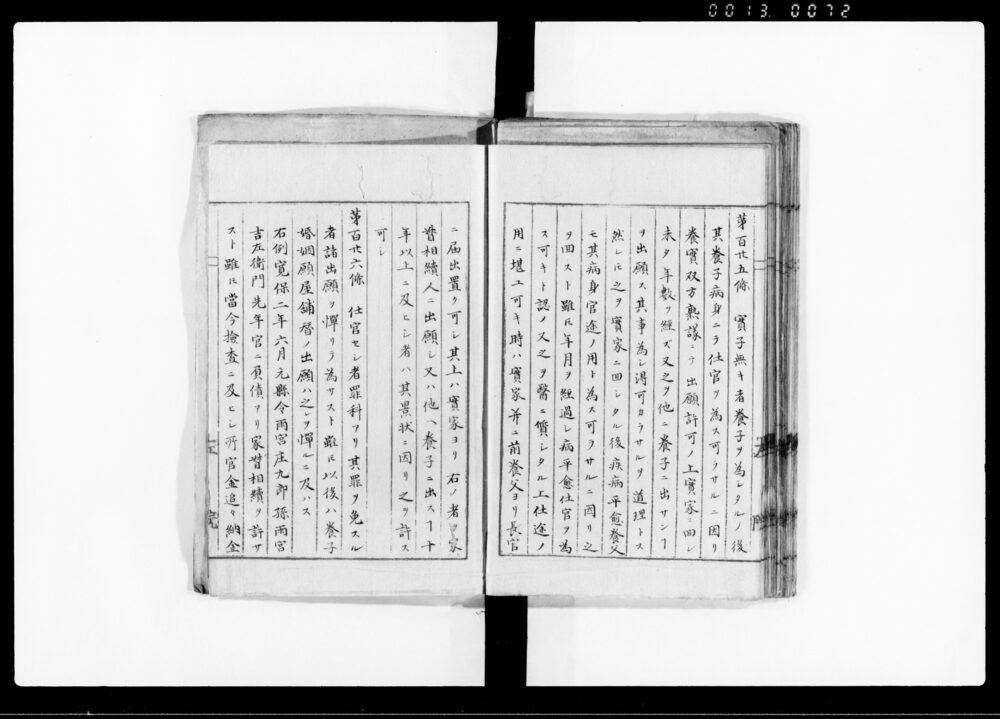 0013 0072
第百廿五條 實子無キ者養子ヲ為シタルノ後
其養子病身ニテ仕官ヲ為ス可ラサルニ因リ
養實双方熟議ニテ出願許可ノ上實家ニ回シ
未タ年數ヲ經ズ又之ヲ他ニ養子ニ出サンヿ
ヲ出願ス其事為シ得可カラサルヲ道理トス
然レ𪜈之ヲ實家ニ回シタル後疾病平愈養父
モ其病身官途ノ用ト為ス可ラサルニ因リ之
ヲ回スト雖𪜈年月ヲ經過シ病平愈仕官ヲ為
ス可キト認メ又之ヲ醫ニ質シタル上仕途ノ
用ニ堪ユ可キ時ハ實家并ニ前養父ヨリ長官
ニ届出置ク可シ其上ハ實家ヨリ右ノ者家
督相續人ニ出願シ又ハ他ヘ養子ニ出スヿ十
年以上ニ及ヒシ者ハ其景状ニ因リ之ヲ許ス
可シ
第百廿六條 仕官セシ者罪科アリ其罪ヲ免スル
者諸出願ヲ憚リテ為サスト雖𪜈以後ハ養子
婚姻願屋舗替ノ出願ハ之レヲ憚ルニ及ハス
右例寛保二年六月元縣令雨宮庄九郎孫雨宮
吉左衛門先年官ニ負債アリ家督相續ヲ許サ
スト雖𪜈當今撿査ニ及ヒシ所官金追々納金